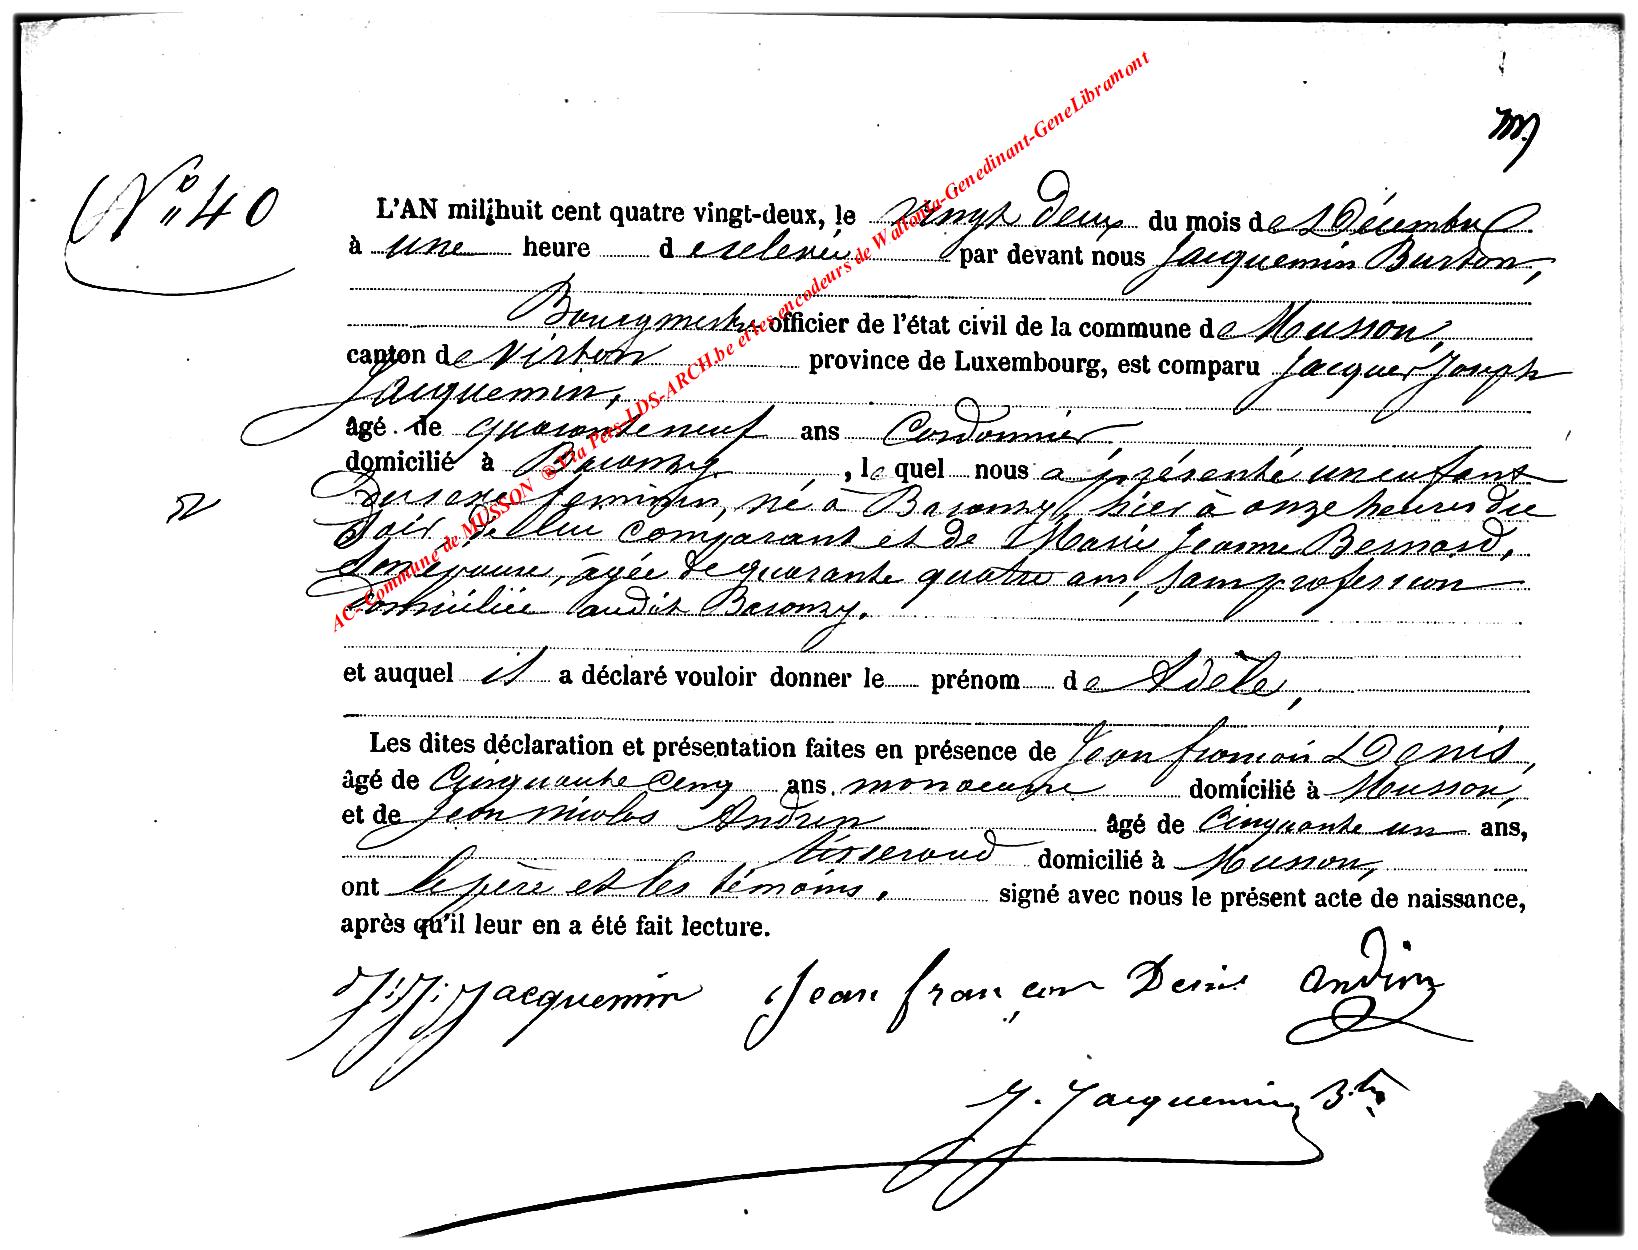 N° 40
L'AN mil huit cent quatre vingt-deux, le vingt deux du mois de Décembre
à une heure de relevée par devant nous Jacquemin Burton,
Bourgmestre officier de l'état civil de la commune de Musson,
canton de Virton province de Luxembourg, est comparu Jacques Joseph
Jacquemin,
âgé de quaranteneuf ans Cordonnier
domicilié à Baranzy , lequel nous a présenté un enfant
du sexe feminin, né à Baranzy, hier à onze heures du
soir, de lui comparant et de Marie Jeanne Bernard,
son épouse, âgée de quarante quatre ans, sans profession
domiciliée audit Baranzy.
et auquel il a déclaré vouloir donner le prénom de Adèle,
Les dites déclaration et présentation faites en présence de Jean françois Denis,
âgé de Cinquante cinq ans, manoeuvre domicilié à Musson,
et de Jean nicolas Andrin âgé de Cinquante un ans,
tisserand domicilié à Musson,
ont le père et les témoins, signé avec nous le présent acte de naissance,
après qu'il leur en a été fait lecture.
J. J. Jacquemin Jean françois Denis Andrin
J. Jacquemin Btn
AC-Commune de MUSSON ® Via Pers-LDS-ARCH.be et les encodeurs de Wallonia-Genedinant-GeneLibramont